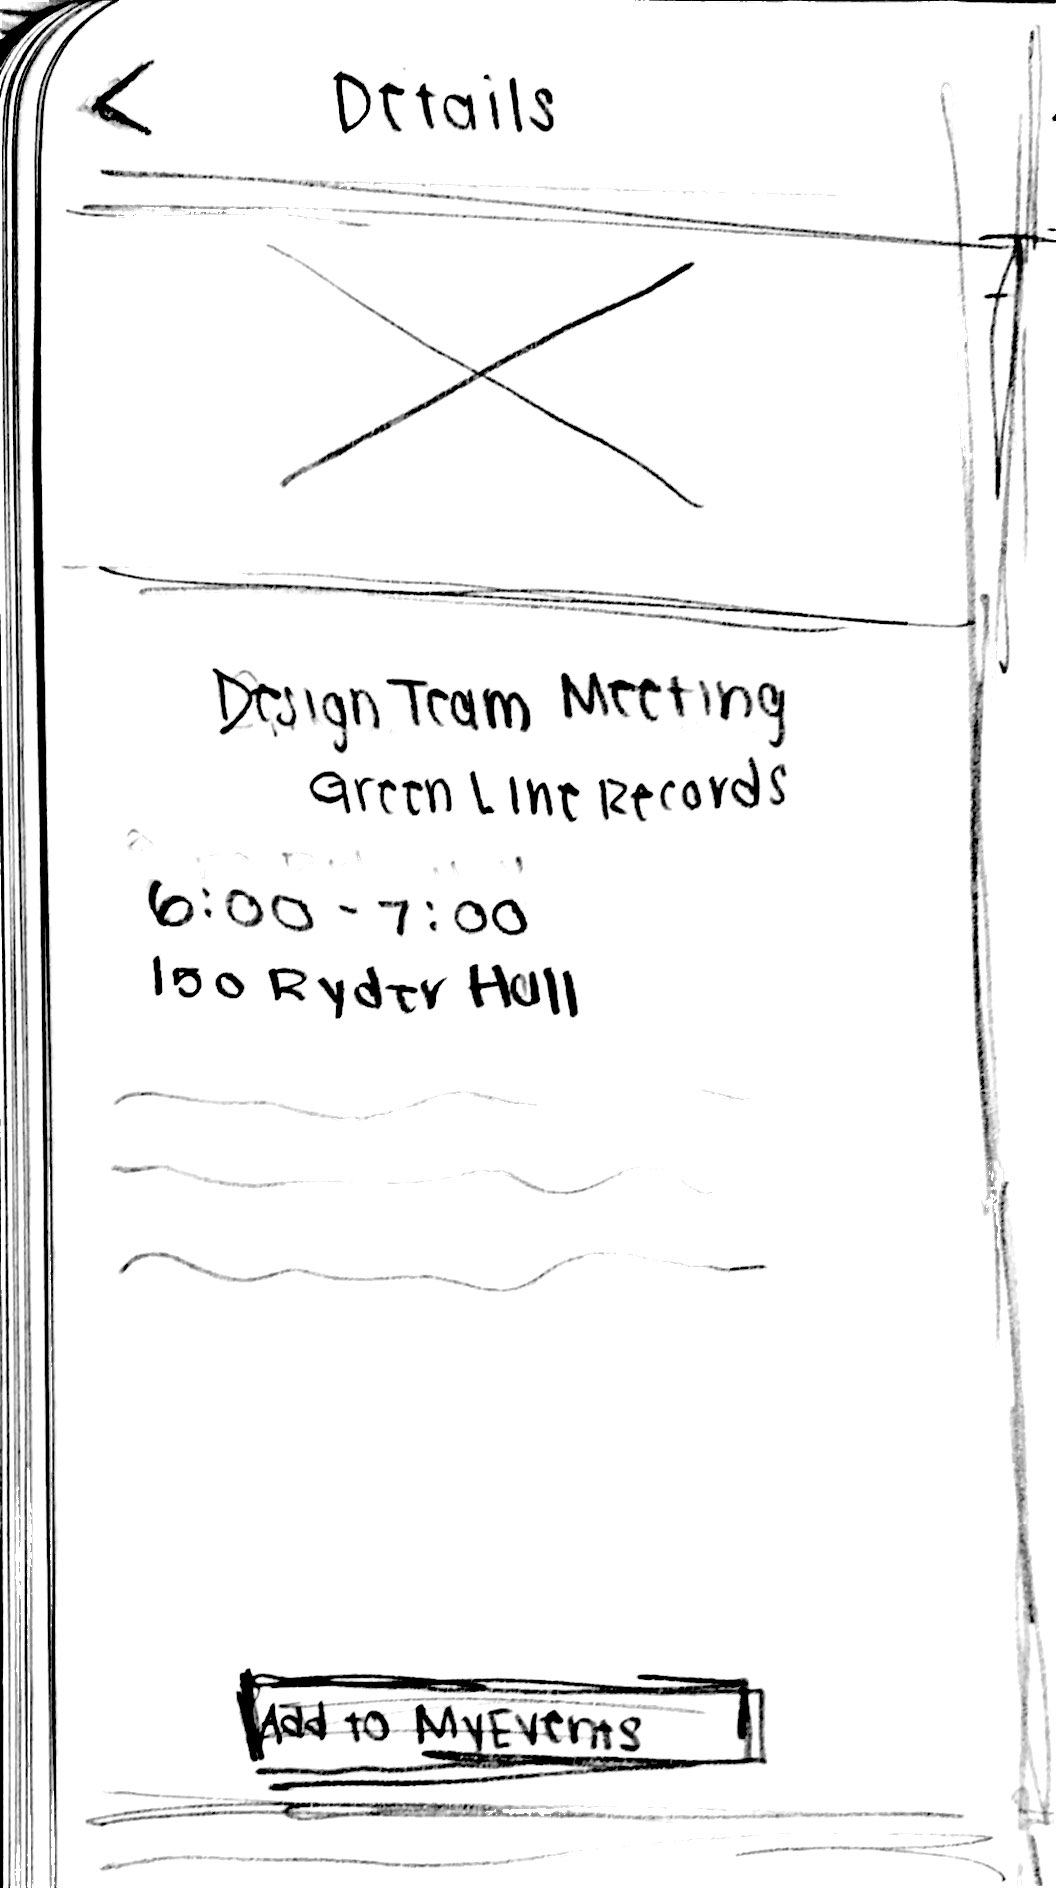 < Details
Design Team Meeting
Green Line Records
6:00 - 7:00
150 Ryder Hall
Add to MyEvents